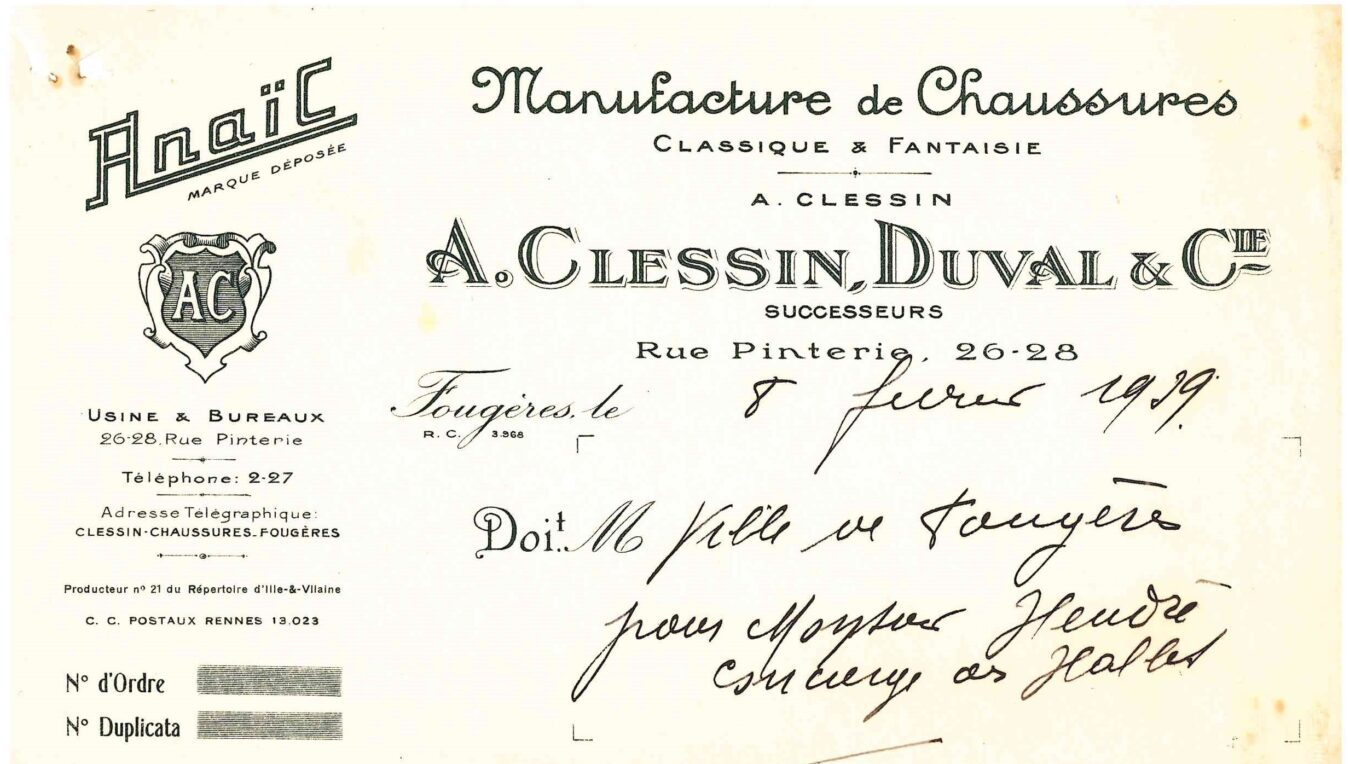 AnaïC
MARQUE DÉPOSÉE
AC
USINE & BUREAUX
26-28, Rue Pinterie
Téléphone: 2-27
Adresse Télégraphique:
CLESSIN-CHAUSSURES-FOUGÈRES
Producteur nº 21 du Répertoire d'Ille-&-Vilaine
C. C. POSTAUX RENNES 13.023
Nº d'Ordre
Nº Duplicata
Manufacture de Chaussures
CLASSIQUE & FANTAISIE
A. CLESSIN
A. CLESSIN, DUVAL & CIE
SUCCESSEURS
Rue Pinterie, 26-28
Fougères, le 8 fevrier 1939.
R. C. 3.968
Doit M Ville de Fougères
pour Monsieur
concierge des Halles